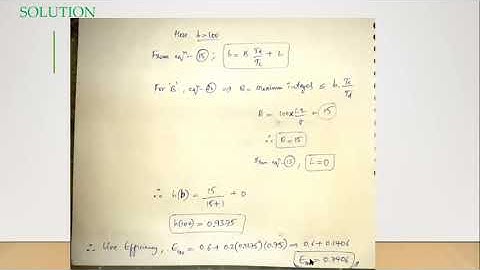 SOLUTION
Here h=100
From eqn- (15); h = B Td/Tc + L
For 'B', eqn- ⇒ B = maximum integer ≤ h.Tc/Td
= 15
∴ B=15
From eqn (13), L=0
∴ h(h) = 15/15+1 + 0
h(100) = 0.9375
∴ Line Efficiency, E100 = 0.6 + 0.2(0.9375)(0.75) ⇒ 0.6 + 0.1406
E100 = 0.7406